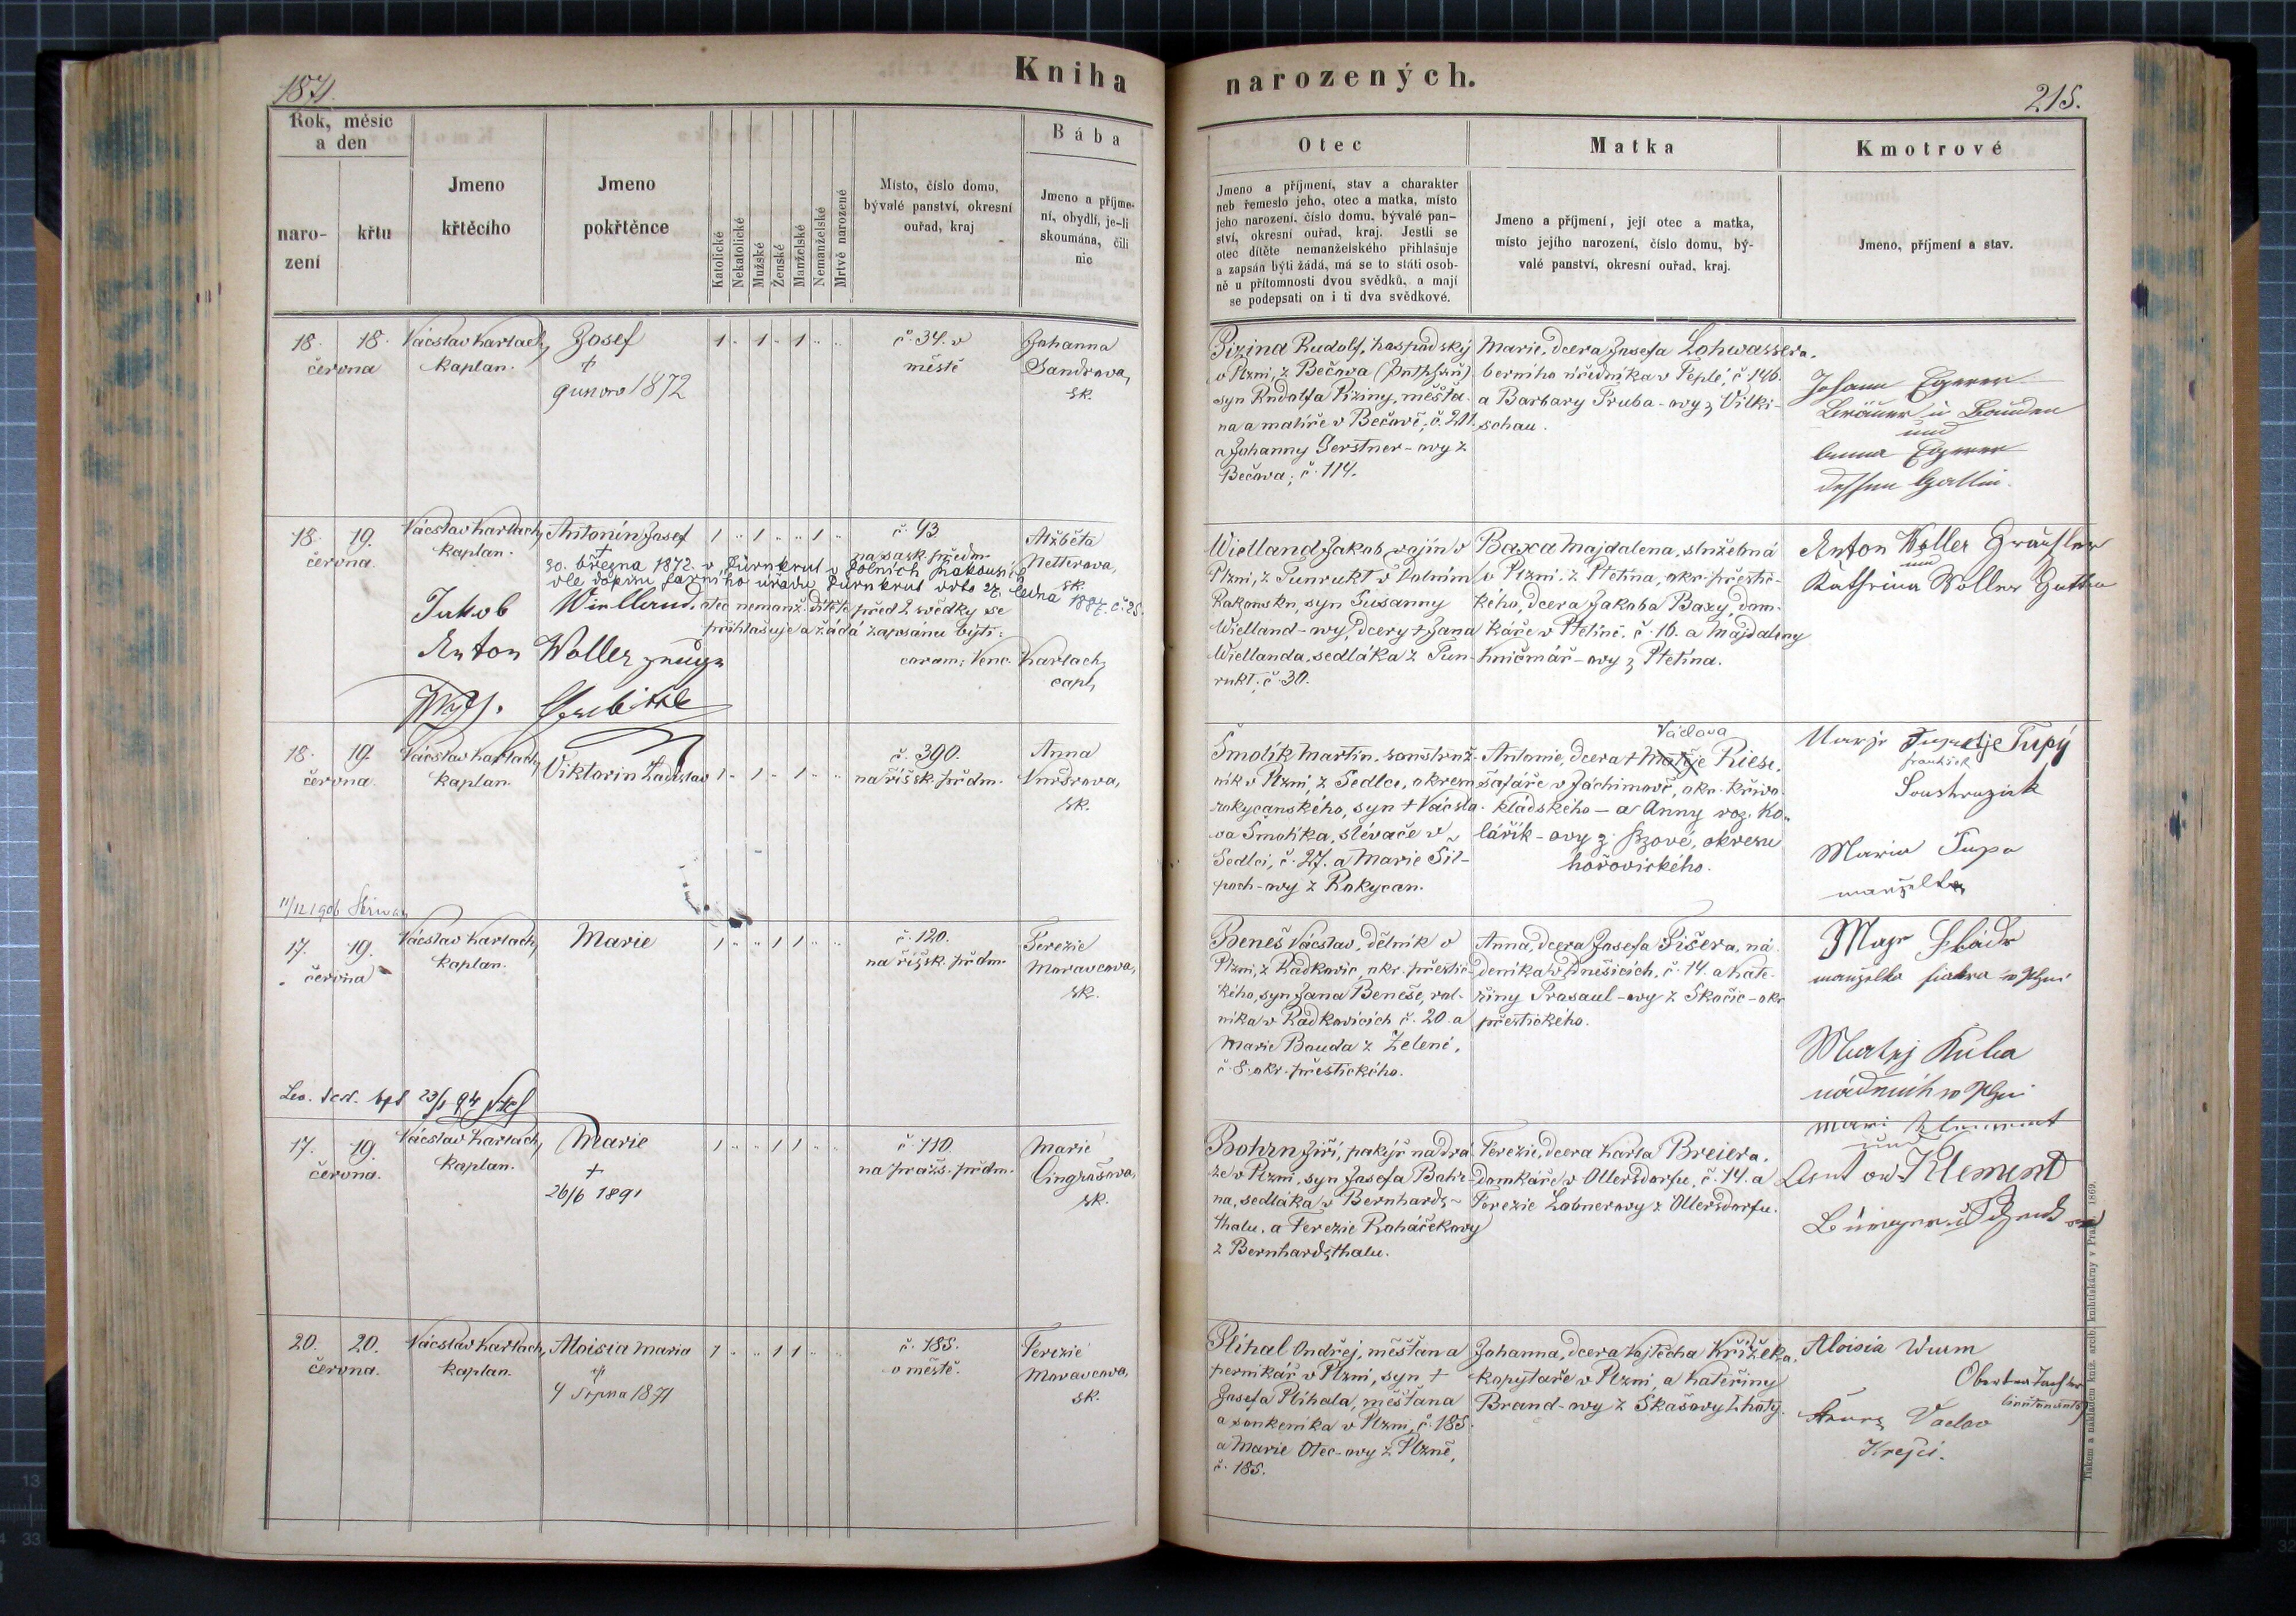 1871.
Kniha
narozených.
215.
Rok, měsíc
a den
naro-
zení
křtu
Jmeno
křtěcího
Jmeno
pokřtěnce
Katolické
Nekatolické
Mužské
Ženské
Manželské
Nemanželské
Mrtvě narozené
Místo, číslo domu,
bývalé panství, okresní
ouřad, kraj
Bába
Jmeno a příjme-
ní, obydlí, je-li
skoumána, čili
nic
Otec
Jmeno a příjmení, stav a charakter
neb řemeslo jeho, otec a matka, místo
jeho narození, číslo domu, bývalé pan-
ství, okresní ouřad, kraj. Jestli se
otec dítěte nemanželského přihlašuje
a zapsán býti žádá, má se to státi osob-
ně u přítomnosti dvou svědků, a mají
se podepsati on i ti dva svědkové.
Matka
Jmeno a příjmení, její otec a matka,
místo jejího narození, číslo domu, bý-
valé panství, okresní ouřad, kraj.
Kmotrové
Jmeno, příjmení a stav.
18. 18.
června
Vácslav Karlach,
kaplan.
Josef
+
1872
1 " 1 " 1 " "
č. 34. v
městě
Johanna
Sandrova,
zk.
Pizina Rudolf, hospodský
v Plzni, z Bečova
syn Rudolfa Piziny, měšťa-
na a malíře v Bečově, č. 211.
a Johanny Gerstner-ovy z
Bečova, č. 114.
Marie, dcera Josefa Lohwassera,
berního úředníka v Teplé, č. 146.
a Barbary Truba-ovy z Vilki-
schau.
Johann Egerer
und
Anna Egerer
dessen Gattin.
18. 19.
června.
Vácslav Karlach,
kaplan.
Antonín Josef
+
1 " 1 " " 1 "
č. 43
na sask. předm.
Alžběta
Netterova,
zk.
30. března 1872. v Dürnkrut v Dolních Rakousích
dle dopisu farního úřadu Dürnkrut ddto 27. ledna 1887. č. 25.
Jakob Wielland, otec nemanž. dítěte před 2. svědky se
přihlašuje a žádá zapsánu býti:
Anton Woller Zeuge
coram: Venc. Karlach,
capl,
Wielland Jakob, vojín v
Plzni, z Sunrukt v Dolním
Rakousku, syn Susanny
Wielland-ovy, dcery + Jana
Wiellanda, sedláka z Sun-
rukt, č. 30.
Baxa Majdalena, služebná
v Plzni, z Ptetína, okr. přešti-
kého, dcera Jakoba Baxy, dom-
káře v Ptetíně, č. 16. a Majdaleny
Kničmář-ovy z Ptetína.
Anton Woller
und
Katharina Woller Gattin
18. 19.
června.
Vácslav Karlach,
kaplan.
Viktorin Ladislav
1 " 1 " 1 " "
č. 390.
na říšsk. předm.
Anna
zk.
11/12 1906
Smolík Martin, soustruž-
ník v Plzni, z Sedlce, okresu
rokycanského, syn + Vácsla-
va Smolíka, slévače v
Sedlci, č. 27. a Marie Sil-
poch-ovy z Rokycan.
Václava
Antonie, dcera + Matěje Riese,
šafáře v Jáchimově, okr. křivo-
kládského - a Anny roz. Ko-
lářík-ovy z Bzové, okresu
hořovického.
Tupý
františek
Soustruznik
Maria Tupa
manželka
17. 19.
června
Vácslav Karlach,
kaplan.
Marie
1 " " 1 1 " "
č. 120.
na říšsk. předm.
Terezie
Moravcova,
zk.
Beneš Vácslav, dělník v
Plzni, z Radkovic, okr. přešti-
kého, syn Jana Beneše, rol-
níka v Radkovicích č. 20. a
Marie Bouda z Zelené,
č. 8. okr. přeštického.
Anna, dcera Josefa Fišera, ná-
deníka v Dnešicích, č. 14. a Kate-
řiny Prosaul-ovy z Skočic - okr.
přeštického.
manželka fiakra w Plzni
Matej Kuba
nádenník w Plzni
17. 19.
června.
Vácslav Karlach,
kaplan.
Marie
+
26/6 1891
1 " " 1 1 " "
č. 110.
na pražs. předm.
Marie
Cingrošova,
zk.
Bohrn Jiří, pakýř na drá-
ze v Plzni, syn Josefa Bohr-
na, sedláka v Bernhards-
thalu, a Terezie Roháčekovy
z Bernhardsthalu.
Terezie, dcera Karla Breiera,
domkáře v Ollersdorfu, č. 14. a
Terezie Labnerovy z Ollersdorfu.
Klement
20. 20.
června.
Vácslav Karlach,
kaplan.
Aloisia Maria
+
4 Srpna 1871
1 " " 1 1 " "
č. 185.
v městě.
Terezie
Moravcova,
zk.
Plíhal Ondřej, měšťan a
perníkář v Plzni, syn +
Josefa Plíhala, měšťana
a soukeníka v Plzni, č. 185.
a Marie Otec-ovy z Plzně,
č. 185.
Johanna, dcera Vojtěcha Křížeka,
kopytáře v Plzni, a Kateřiny
Brand-ovy z Skašovy Lhoty.
Aloisia Wurm
Vaclav
Krejči.
Tiskem a nákladem kníž. arcib. knihtiskárny v Praze 1869.